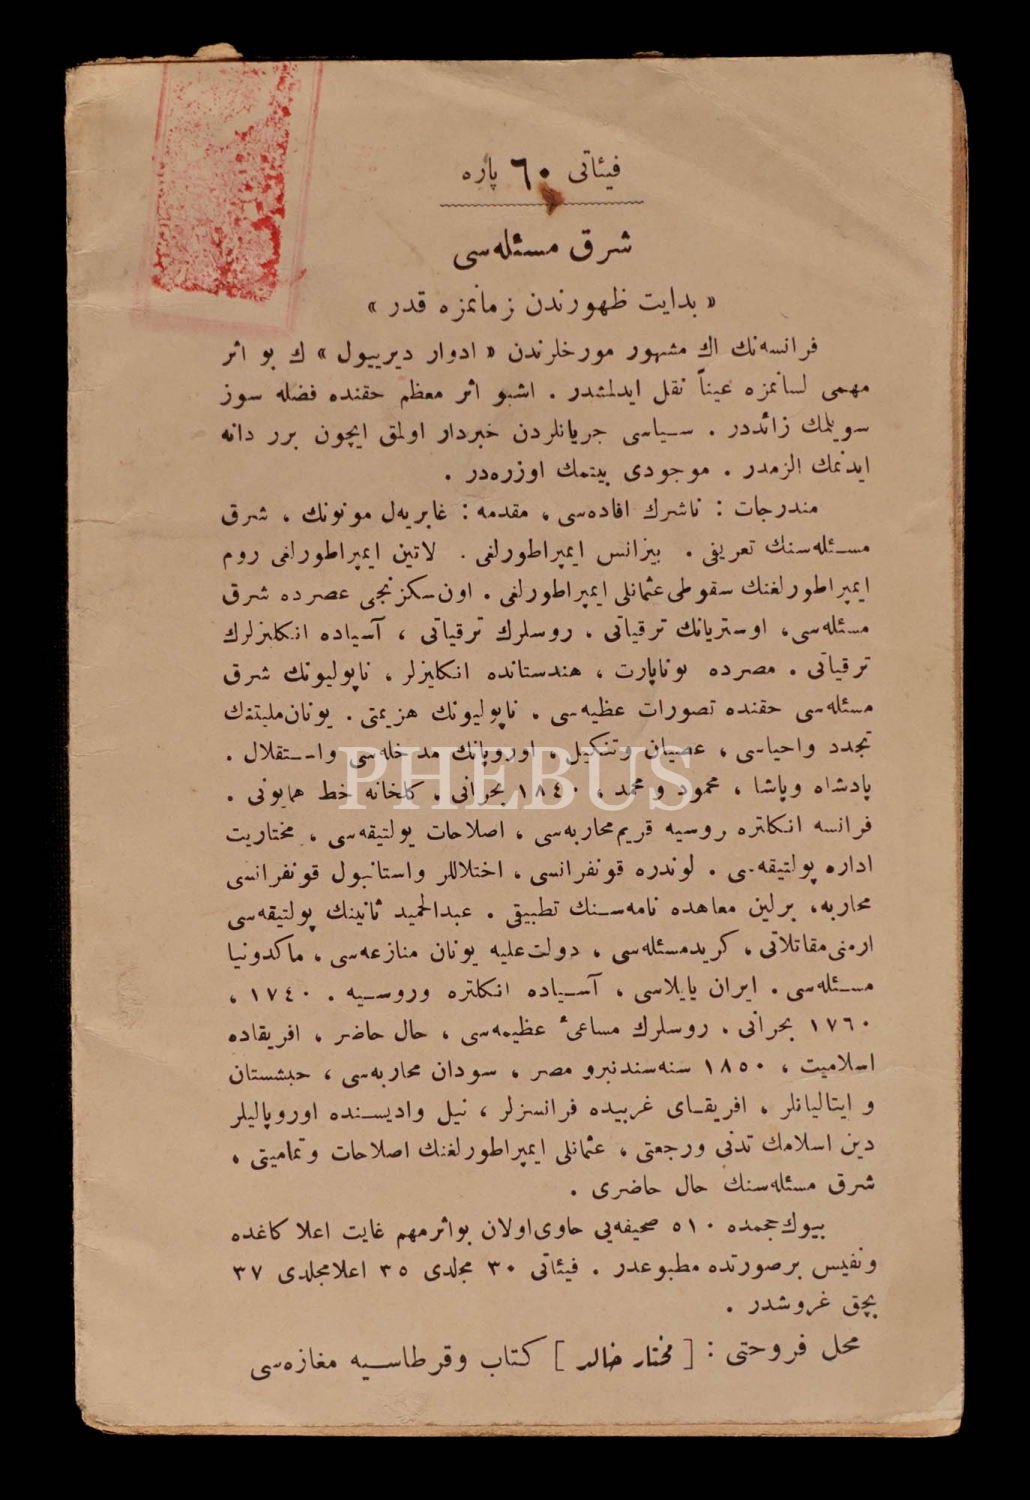 فيئاتى ٦٠ پاره
شرق مسئله‌سى
« بدايت ظهورندن زمانمزه قدر »
فرانسه‌نك اك مشهور مورخلرندن « ادوار ديرييول » ك بو اثر
مهمى لسانمزه عيناً نقل ايدلمشدر . اشبو اثر معظم حقنده فضله سوز
سويلمك زائددر . سياسى جريانلردن خبردار اولمق ايچون برر دانه
ايدنمك الزمدر . موجودى بيتمك اوزره‌در .
مندرجات : ناشرك افاده‌سى ، مقدمه : غابريه‌ل مونونك ، شرق
مسئله‌سنك تعريفى . بيزانس ايمپراطورلغى . لاتين ايمپراطورلغى روم
ايمپراطورلغنك سقوطى عثمانلى ايمپراطورلغى . اون‌سكزنجى عصرده شرق
مسئله‌سى ، اوستريانك ترقياتى ، روسلرك ترقياتى ، آسياده انكليزلرك
ترقياتى . مصرده بوناپارت ، هندستانده انكليزلر ، ناپوليونك شرق
مسئله‌سى حقنده تصورات عظيه‌سى . ناپوليونك هزيمتى . يونان‌مليتنك
تجدد واحياسى ، عصيان وتنكيل ، اوروپانك مدخله‌سى واستقلال .
پادشاه وپاشا ، محمود ومحمد ، ١٨٤٠ بحرانى . كلخانه خط همايونى .
فرانسه انكلتره روسيه قريم‌محاربه‌سى ، اصلاحات پولتيقه‌سى ، مختاريت
اداره پولتيقه‌سى . لوندره قونفرانسى ، اختلاللر واستانبول قونفرانسى
محاربه ، برلين معاهده نامه‌سنك تطبيقى . عبدالحميد ثانينك پولتيقه‌سى
ارمنى‌مقاتلاتى ، كريدمسئله‌سى ، دولت‌عليه يونان منازعه‌سى ، ماكدونيا
مسئله‌سى . ايران يايلاسى ، آسياده انكلتره وروسيه . ١٧٤٠ ،
١٧٦٠ بحرانى . روسلرك مساعىٔ عظيمه‌سى ، حال حاضر ، افريقاده
اسلاميت ، ١٨٥٠ سنه‌سندنبرو مصر ، سودان محاربه‌سى ، حبشستان
و ايتاليانلر ، افريقاى غربيده فرانسزلر ، نيل واديسنده اوروپاليلر
دين اسلامك تدنى ورجعتى ، عثمانلى ايمپراطورلغنك اصلاحات وتماميتى ،
شرق مسئله‌سنك حال حاضرى .
بيوك‌حجمده ٥١٠ صحيفه‌يى حاوى‌اولان بواثرمهم غايت اعلا كاغده
ونفيس برصورتده مطبوعدر . فيئاتى ٣٠ مجلدى ٣٥ اعلامجلدى ٣٧
بچق غروشدر .
محل فروختى : [ مختار خالد ] كتاب وقرطاسيه مغازه‌سى
PHEBUS